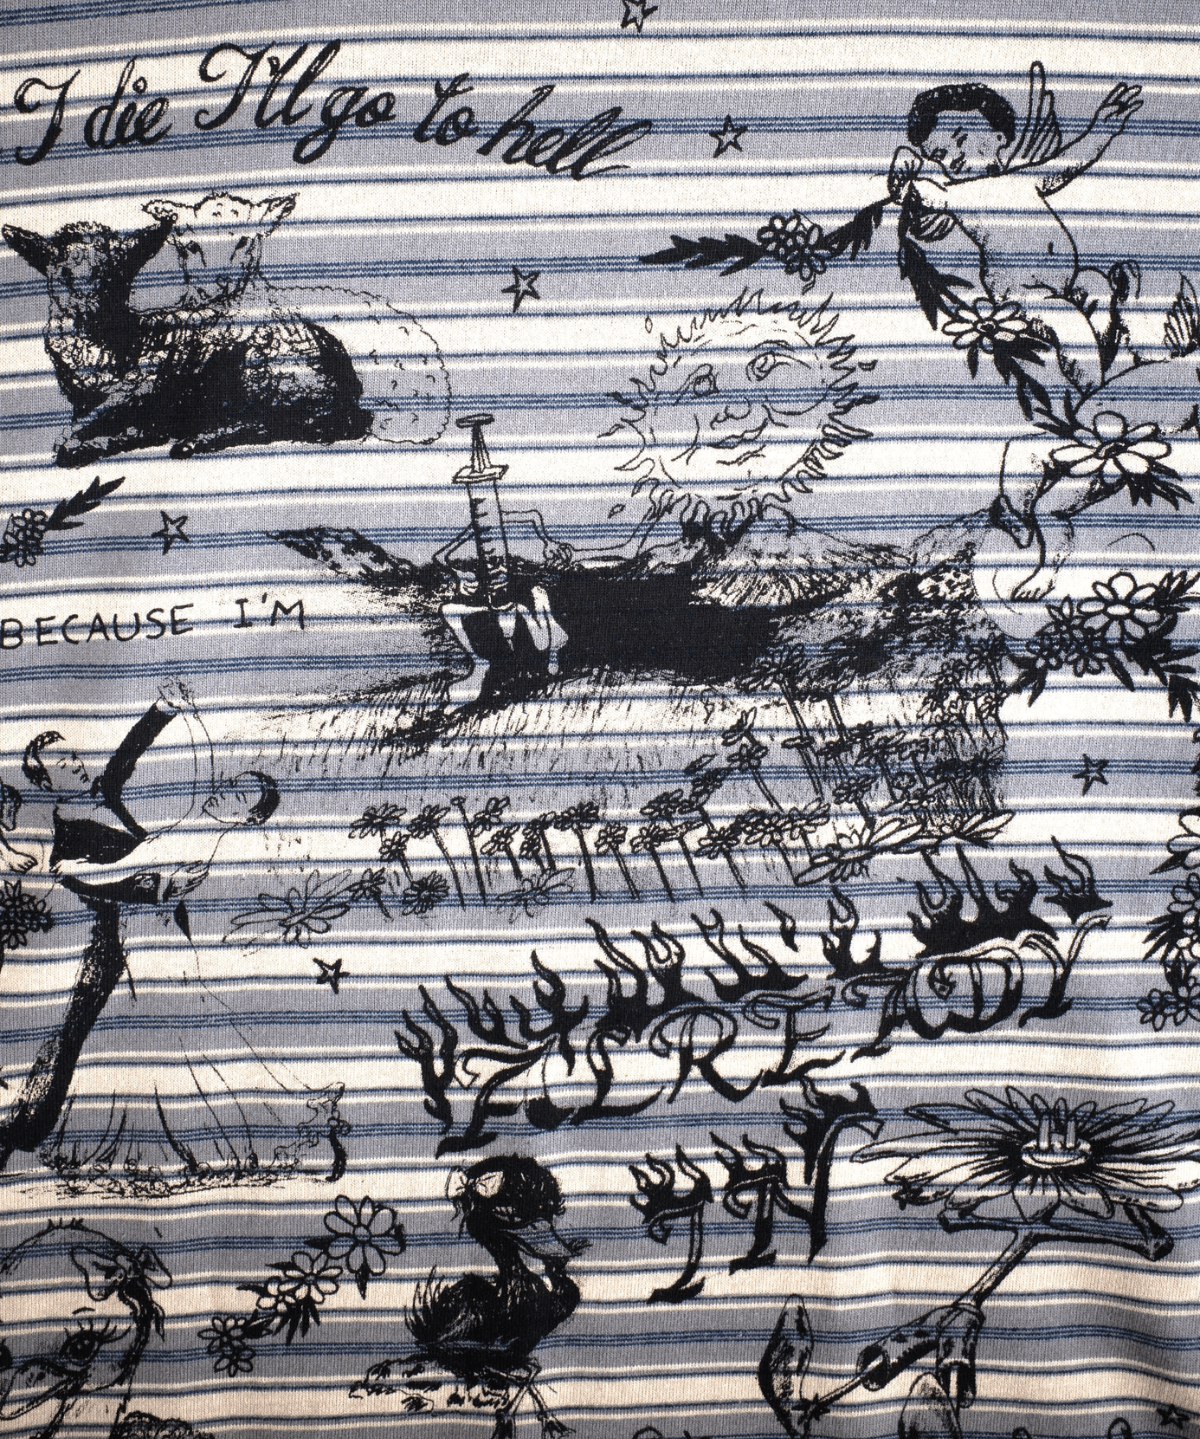 I die I'll go to hell
BECAUSE I'M
ALREADY
IN